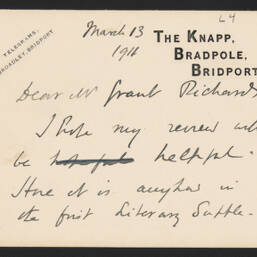 L4
TELEGRAMS,
BROADLEY, BRIDPORT
March 13
1916
THE KNAPP,
BRADPOLE,
BRIDPORT
Dear Mr Grant Richards
I hope my review will
be hopeful helpful.
Here it is anyhow in
the first Literary Supple-